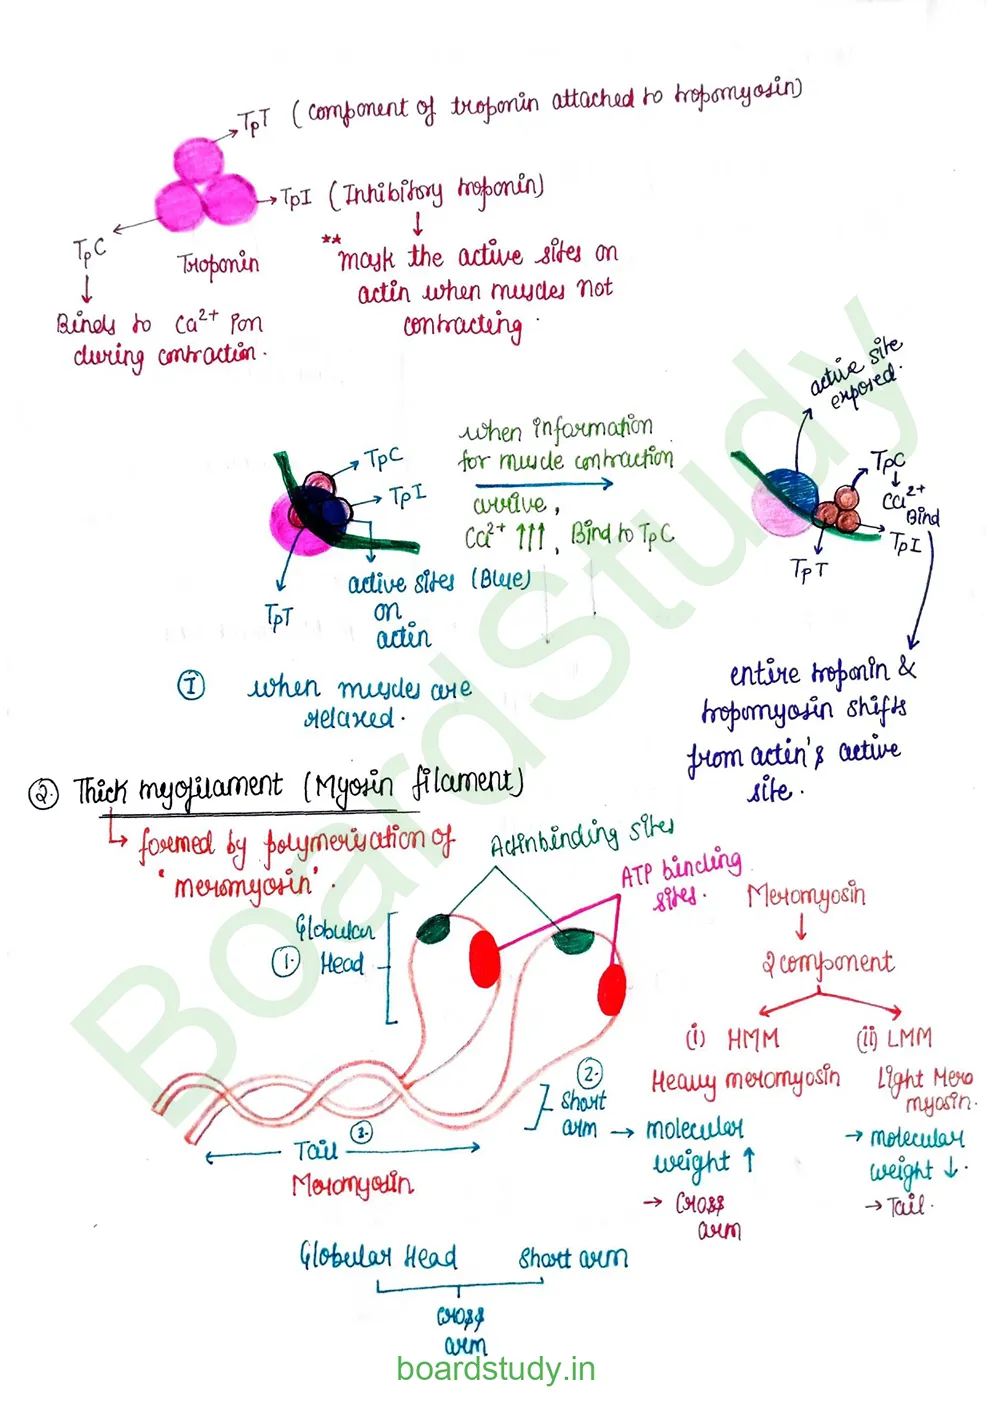 TpT (component of troponin attached to tropomyosin)
TpI (Inhibitory troponin)
TpC
Troponin
** mask the active sites on
actin when muscles not
contracting.
Binds to Ca2+ ion
during contraction.
active site
exposed.
when information
for muscle contraction
arrive,
Ca2+ ↑↑↑, Bind to TpC
TpC
TpI
active sites (Blue)
on
actin
TpT
TpC
Ca2+
Bind
TpI
TpT
I when muscles are
relaxed.
entire troponin &
tropomyosin shifts
from actin's active
site.
2. Thick myofilament (Myosin filament)
formed by polymerisation of
'meromyosin'.
Actinbinding sites
ATP binding
sites.
Globular
1. Head
Meromyosin
2 component
(i) HMM
Heavy meromyosin
(ii) LMM
Light Mero
myosin.
2.
Short
arm
→ molecular
weight ↑
→ Cross
arm
→ molecular
weight ↓.
→ Tail.
Tail 3.
Meromyosin
Globular Head Short arm
Cross
arm
boardstudy.in
BoardStudy